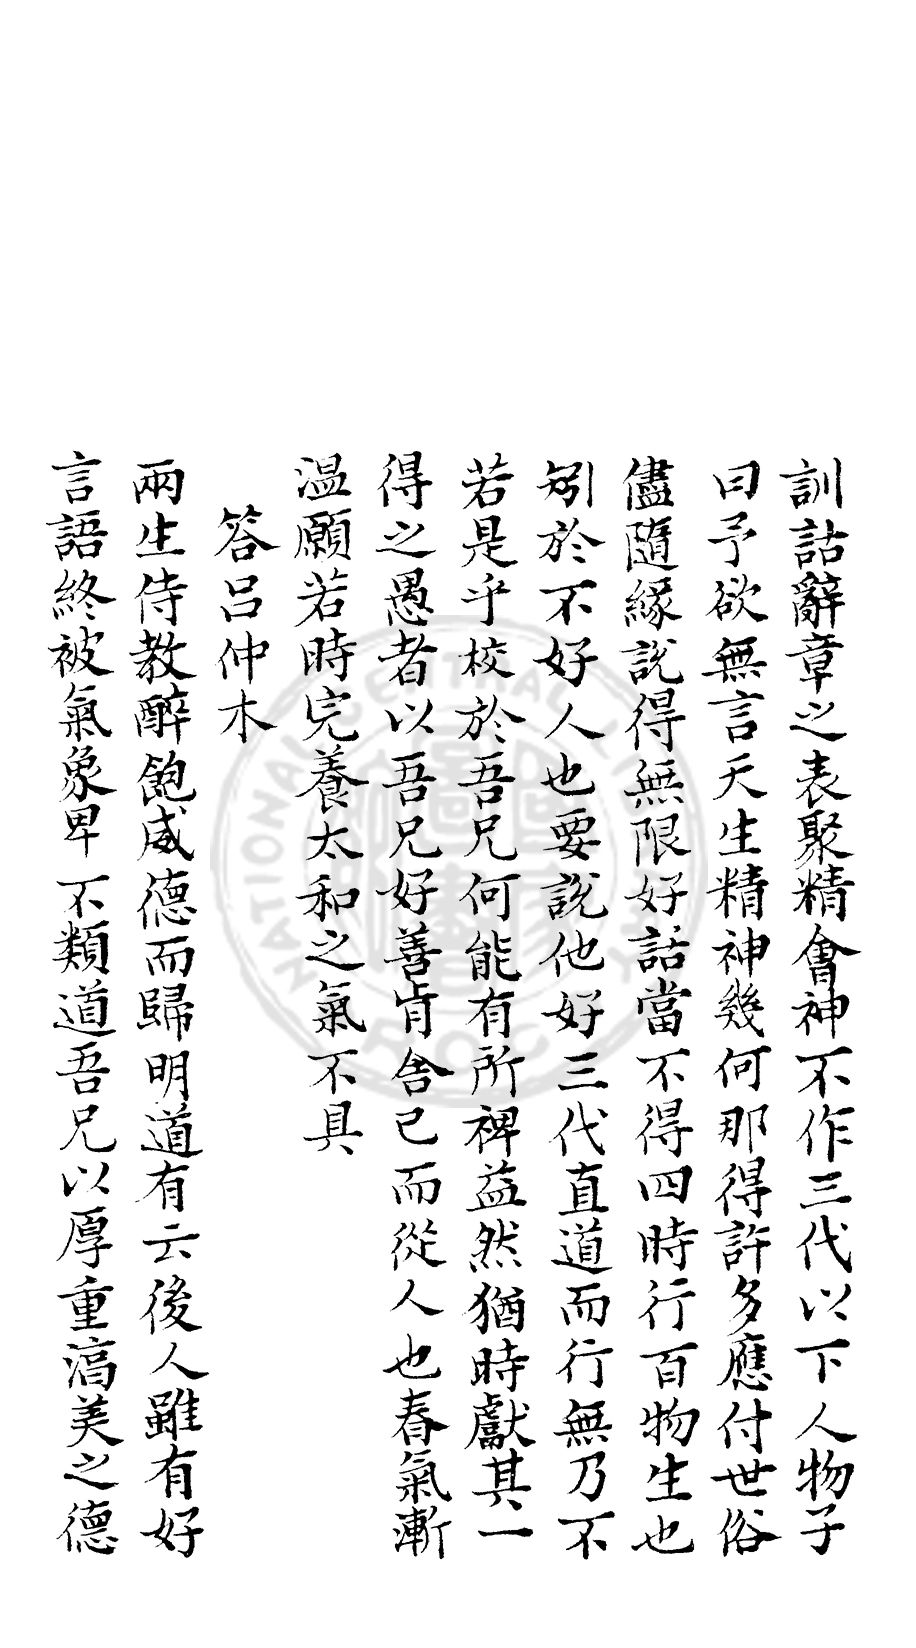 訓詁辭章之表聚精會神不作三代以下人物子
曰予欲無言天生精神幾何那得許多應付世俗
儘隨緣說得無限好話當不得四時行百物生也
矧於不好人也要說他好三代直道而行無乃不
若是乎校於吾兄何能有所裨益然猶時獻其一
得之愚者以吾兄好善肯舍己而從人也春氣漸
温願若時完養太和之氣不具
答呂仲木
兩生侍教醉飽威德而歸明道有云後人雖有好
言語終被氣象卑不類道吾兄以厚重漓美之德
NATIONAL CENTRAL LIBRARY
ROC